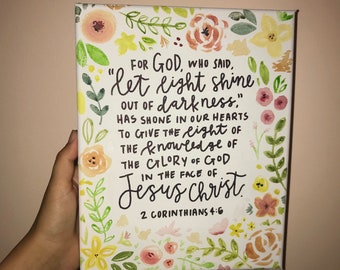 FOR GOD, WHO SAID,
"let light shine
OUT OF darkness,"
HAS SHONE IN OUR HEARTS
TO GIVE THE light OF
THE knowledge OF
THE GLORY OF GOD
IN THE FACE OF
Jesus Christ.
2 CORINTHIANS 4:6